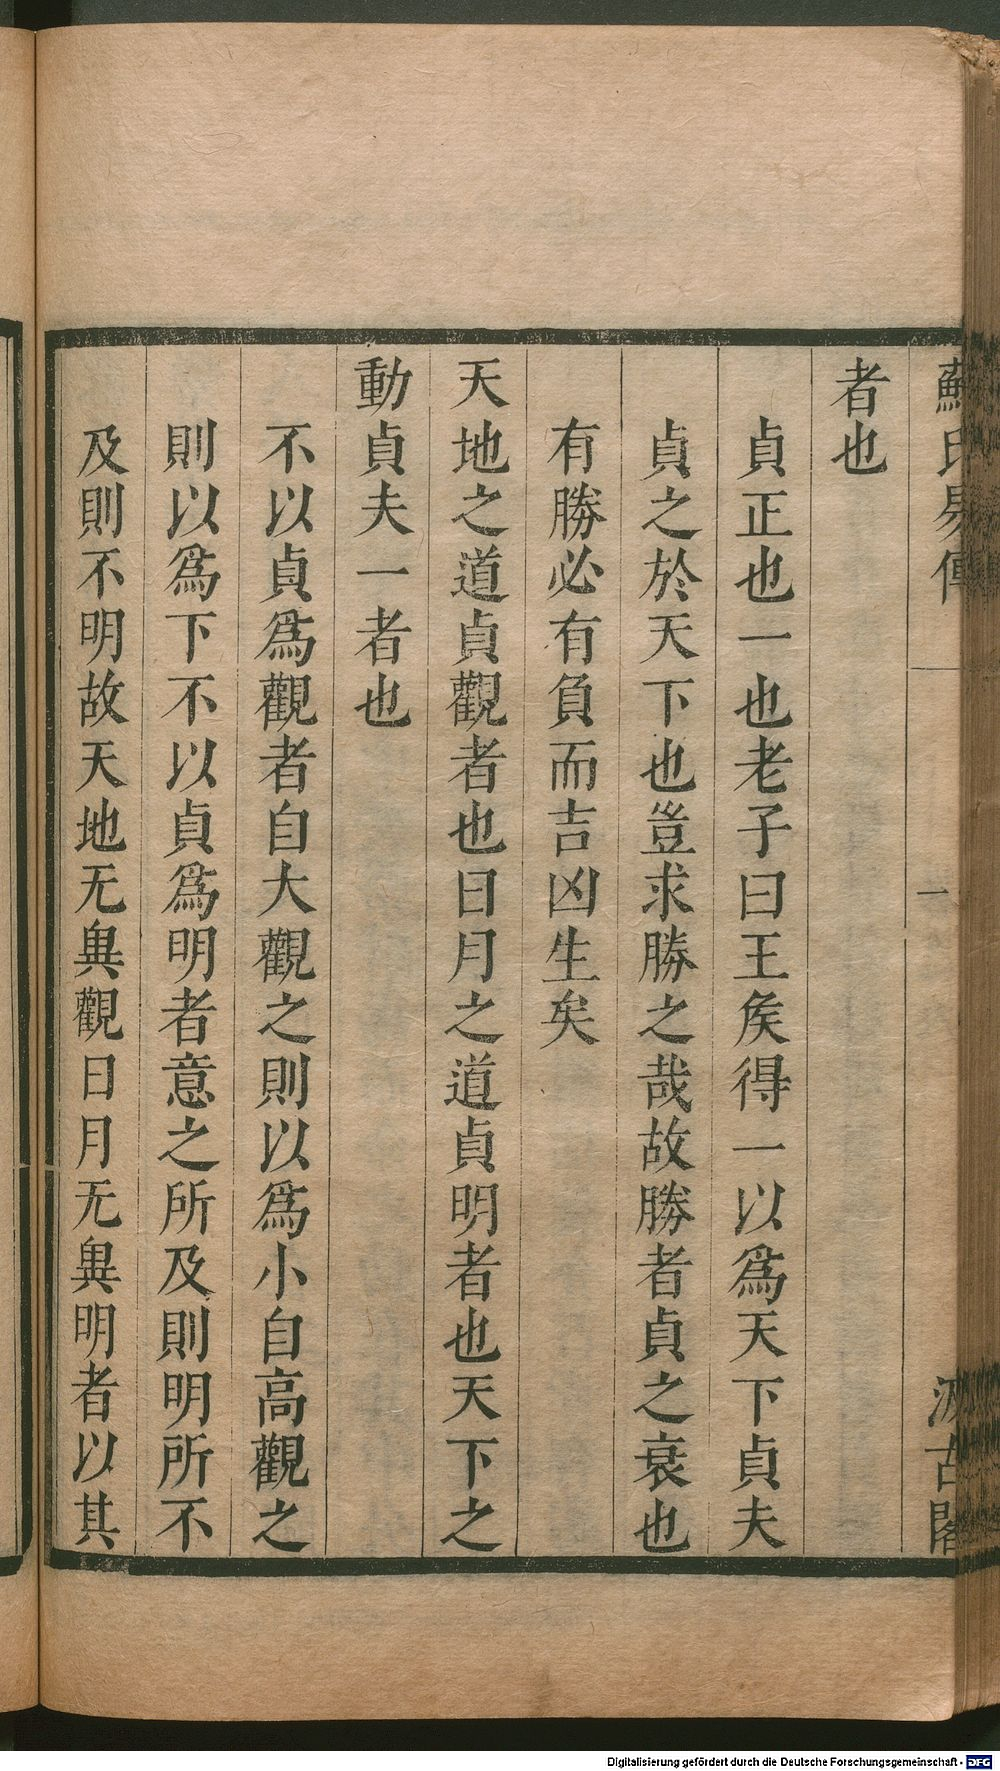 蘇氏易傳 一 汲古閣
者也
貞正也一也老子曰王矦得一以爲天下貞夫
貞之於天下也豈求勝之哉故勝者貞之衰也
有勝必有負而吉凶生矣
天地之道貞觀者也日月之道貞明者也天下之
動貞夫一者也
不以貞爲觀者自大觀之則以爲小自高觀之
則以爲下不以貞爲明者意之所及則明所不
及則不明故天地无異觀日月无異明者以其
Digitalisierung gefördert durch die Deutsche Forschungsgemeinschaft - DFG